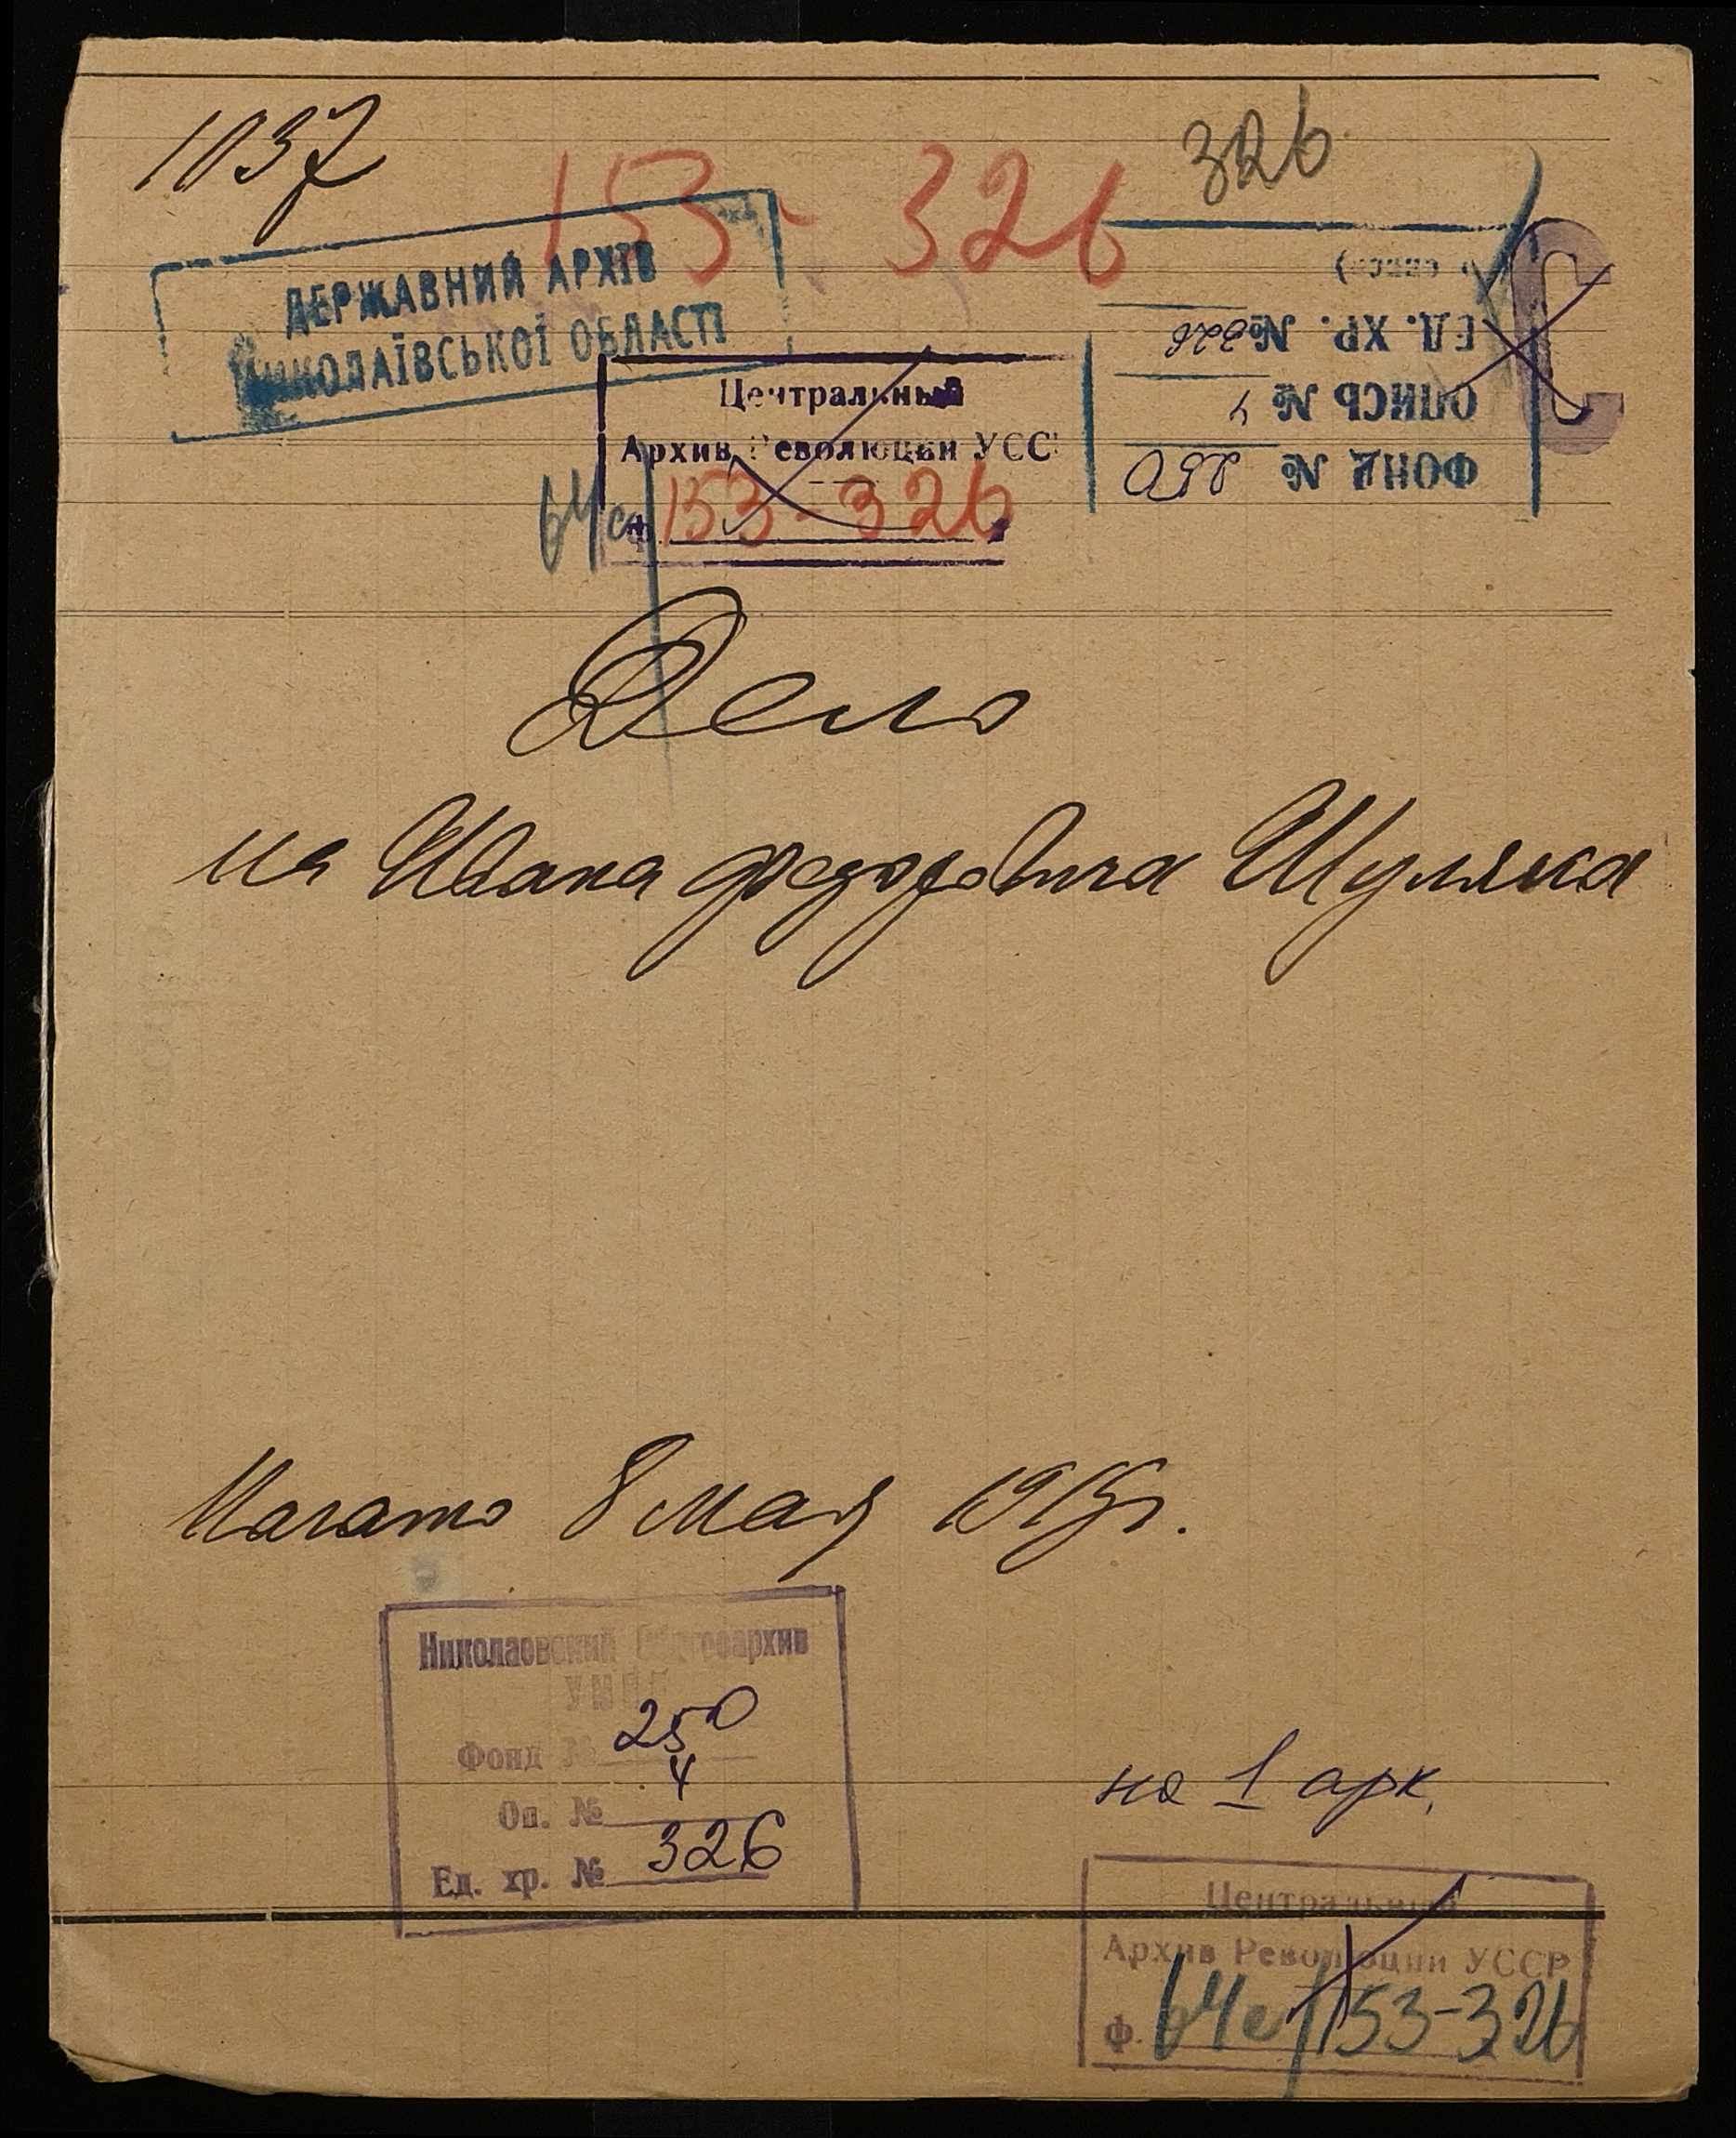 1037
153-326
326
ДЕРЖАВНИЙ АРХІВ
МИКОЛАЇВСЬКОЇ ОБЛАСТІ
ФОНД № 250
ОПИСЬ № 4
ЕД. ХР. № 326
Центральный
Архив Революции УСС
64с
ф. 153-326
Дело
на Ивана Федоровича Шуляка
Начато 8 мая 1915 г.
Николаевский Облгосархив
Фонд № 250
Оп. № 4
Ед. хр. № 326
на 1 арк.
Центральный
Архив Революции УССР
ф. 64с/153-326